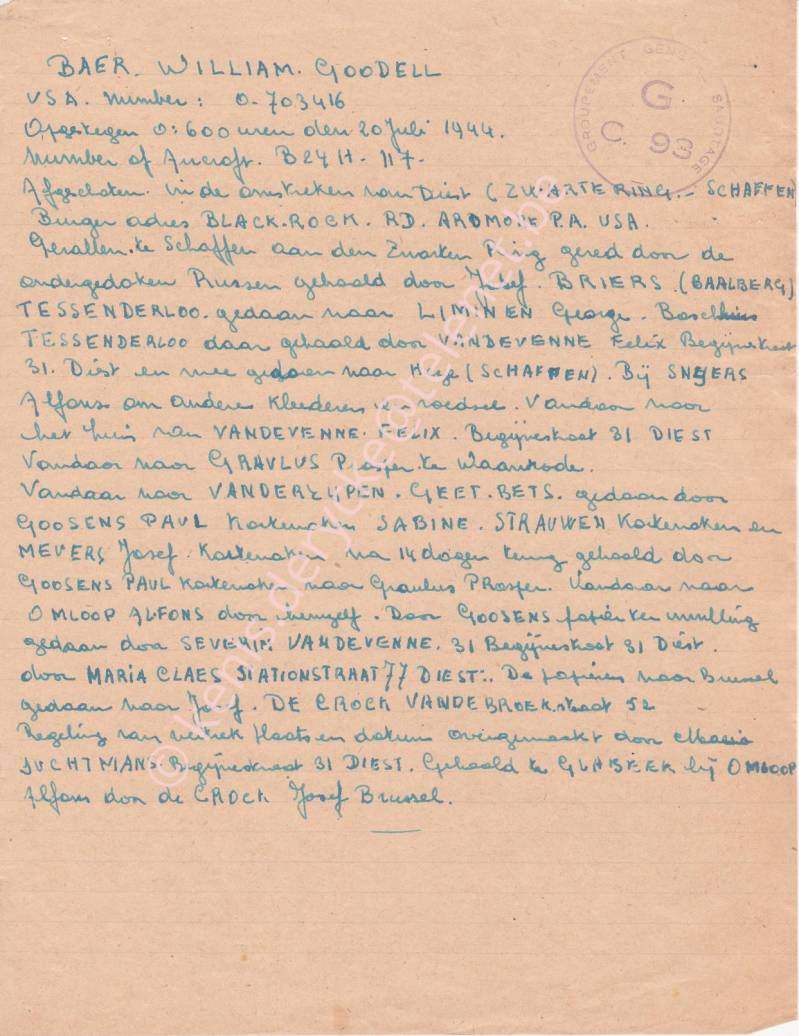 BAER. WILLIAM. GOODELL
USA. Number: O-703416
Opgestegen O:600 uren den 20 Juli 1944.
Number of Aircroft. B24H-117-
Afgeschoten. in de omstreken van Diest (ZWARTE RING.- SCHAFFEN)
Burger adres BLACK.ROCK. RD. ARDMORE P.A. USA.
Gevallen te Schaffen aan den Zwarten Ring gered door de
ondergedoken Russen gehaald door Josef. BRIERS. (BAALBERG)
TESSENDERLOO. gedaan naar LIMNEN George. Boschhuis
TESSENDERLOO daar gehaald door VANDEVENNE Felix Begijnestraat
31. Diest en mee gedaan naar (SCHAFFEN). Bij SNYERS
Alfons om andere kleederen en voedsel. Vandaar naar
het huis van VANDEVENNE. FELIX. Begijnestraat 31 DIEST
Vandaar naar GRAULUS Prosper te Waanrode.
Vandaar naar VANDERLIJPEN. GEET.BETS. gedaan door
GOOSENS PAUL Kortenaken SABINE. STRAUWEN Kortenaken en
MEVERS Josef. Kortenaken na 14 dagen terug gehaald door
GOOSENS PAUL Kortenaken naar Graulus Prosper. Vandaar naar
OMLOOP ALFONS door hemzelf. Door GOOSENS papieren
gedaan door SEVERIN VANDEVENNE. 31 Begijnestraat 31 Diest.
door MARIA CLAES STATIONSTRAAT 77 DIEST. De papieren naar Brussel
gedaan naar Josef. DE CROCK VANDEBROEK.straat 52
Regeling van vertrek plaats en datum overgemaakt door Maria
LUCHTMANS. Begijnestraat 31 DIEST. Gehaald te GLABEEK bij OMLOOP
Alfons door de CROCK Josef Brussel.
GROUPEMENT GENERAL SABOTAGE
G
C. 93
© kenis.deryuke@telenet.be